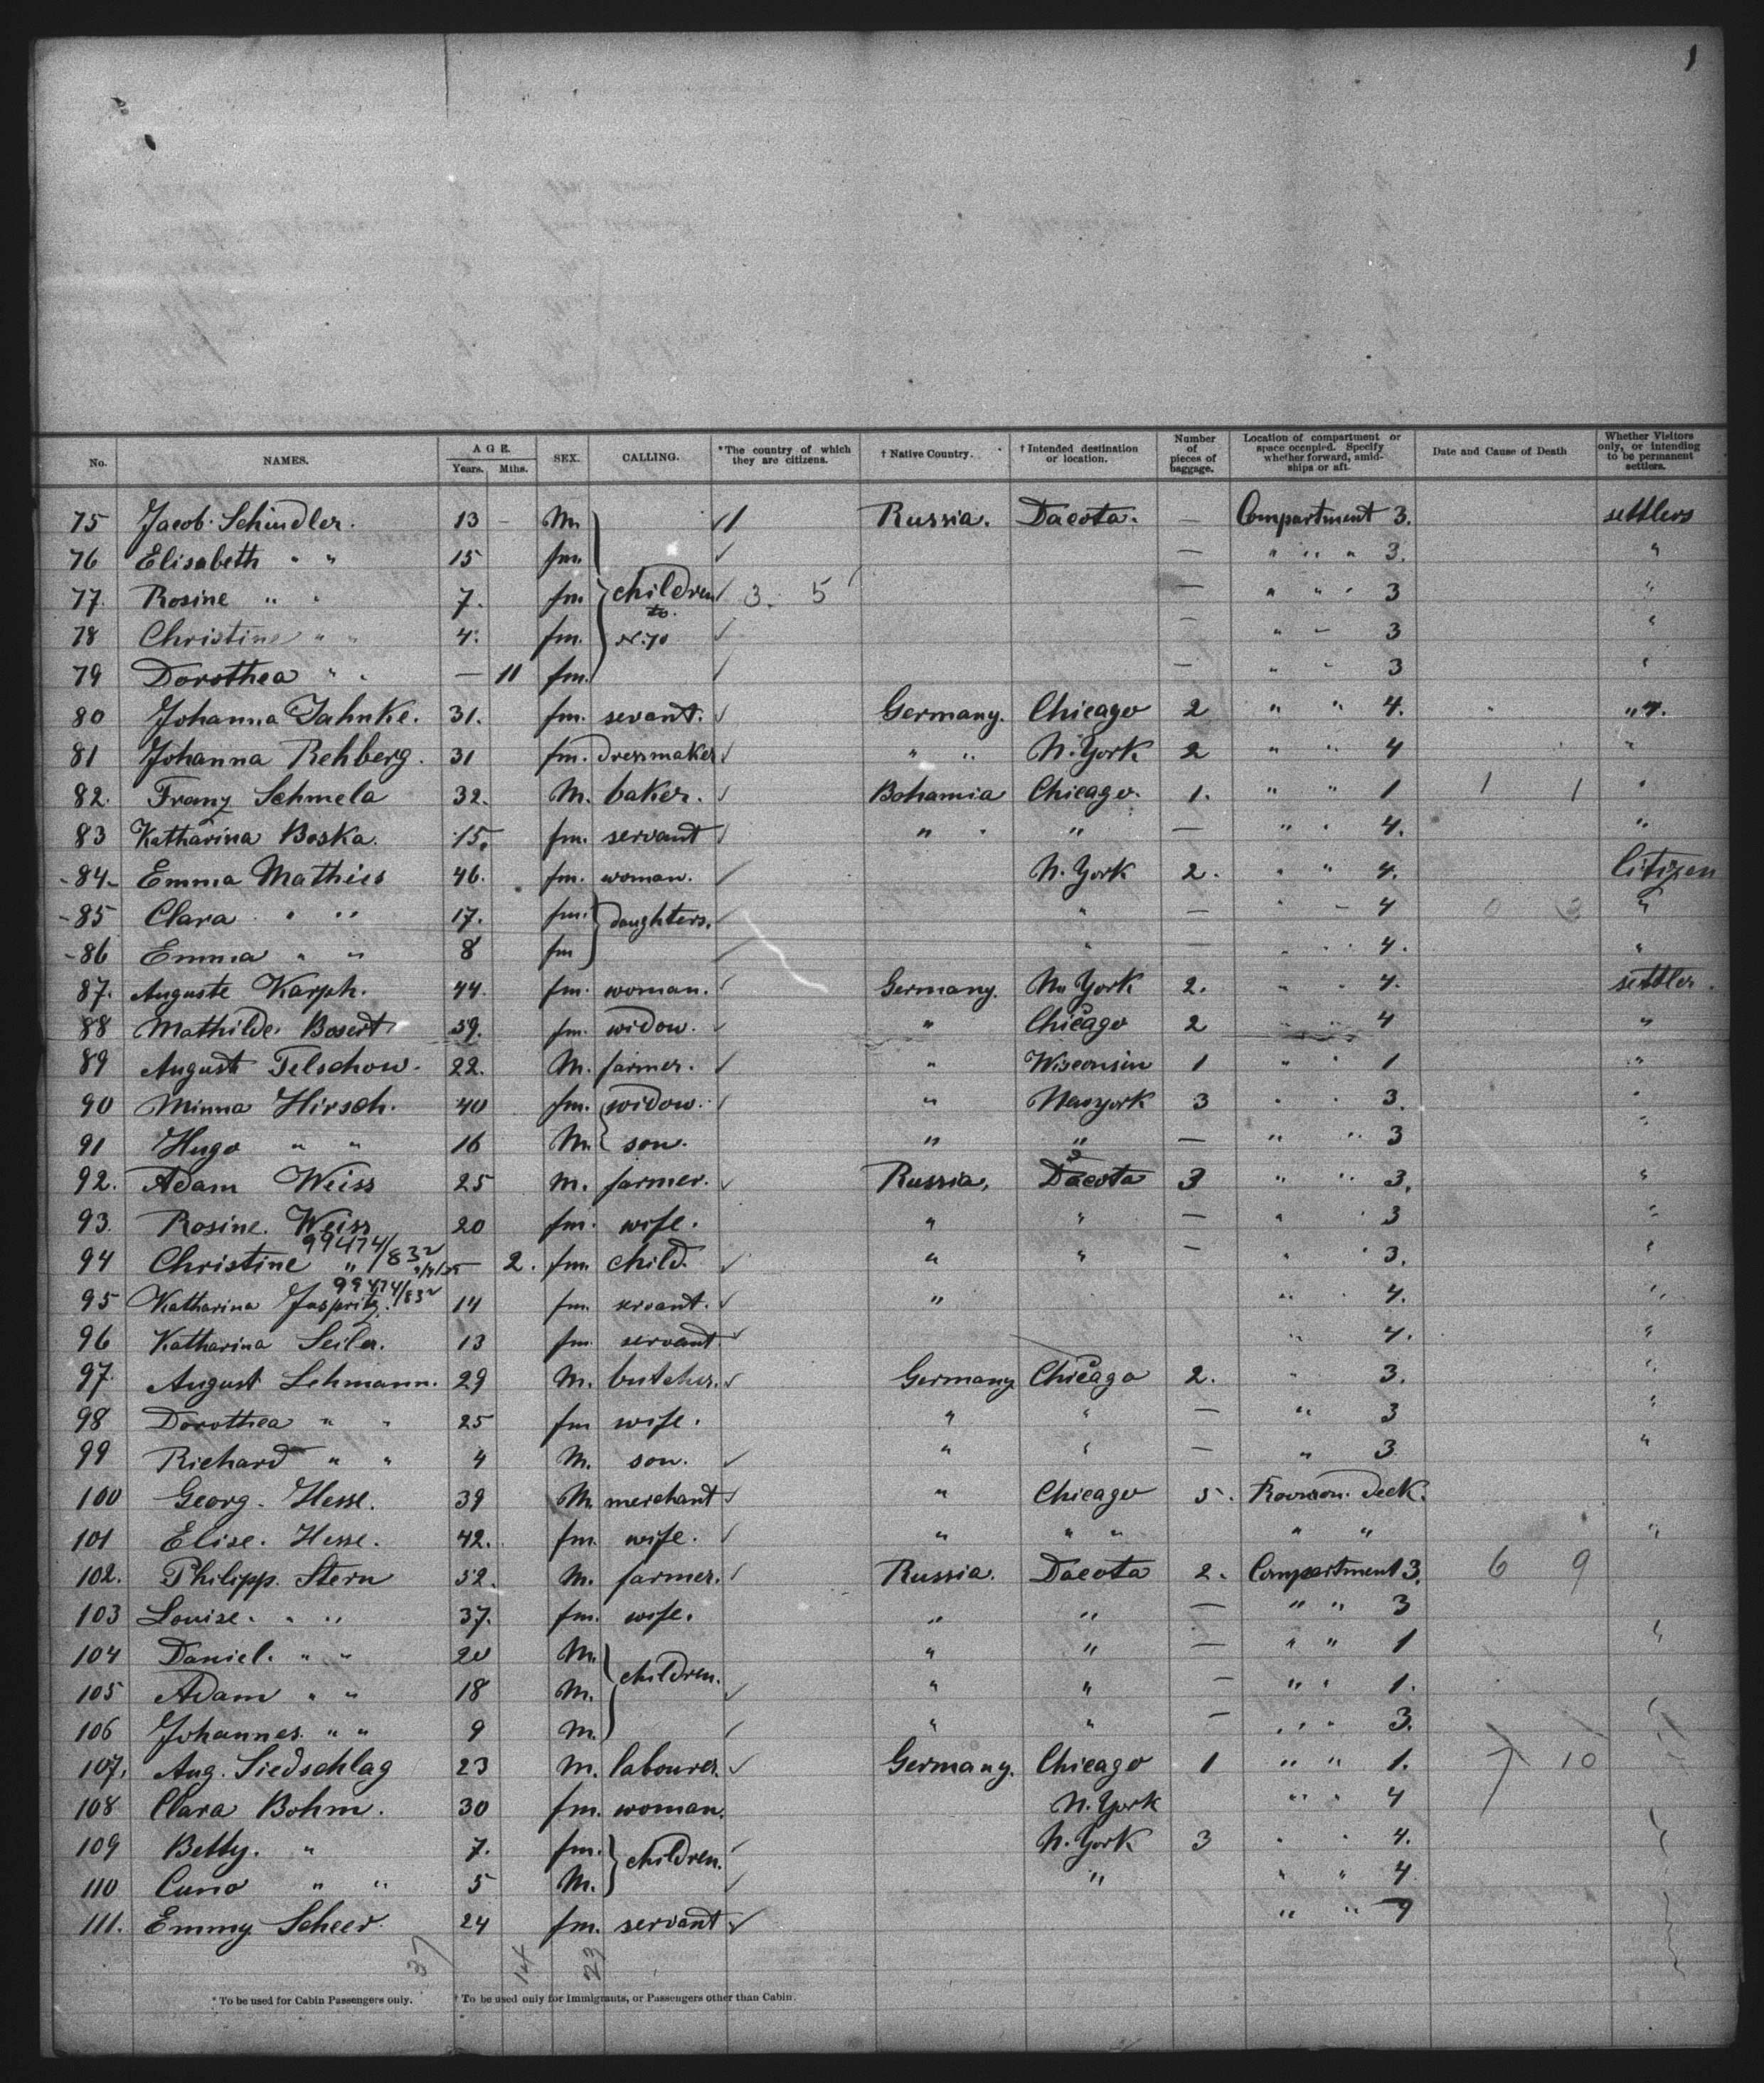 1
No. NAMES. AGE. Years. Mths. SEX. CALLING. *The country of which they are citizens. † Native Country. † Intended destination or location. Number of pieces of baggage. Location of compartment or space occupied. Specify whether forward, amid-ships or aft. Date and Cause of Death Whether Visitors only, or intending to be permanent settlers.
75 Jacob Schindler. 13 — M. 1 Russia. Dacota. — Compartment 3. settlers
76 Elisabeth " " 15 fm. — " " " 3. "
77. Rosine " " 7. fm. children 3. 5 — " " " 3 "
78 Christine " " 4. fm. to N. 70 — " " 3 "
79 Dorothea " " — 11 fm. — " " 3 "
80 Johanna Jahnke. 31. fm. sevant. Germany. Chicago 2 " " 4. "
81 Johanna Rehberg. 31 fm. dressmaker " " N. York 2 " " 4 "
82. Franz Schmela 32. M. baker. Bohamia Chicago. 1. " " 1 1 1 "
83 Katharina Boska. 15. fm. servant " " " — " " 4. "
-84- Emma Mathies 46. fm. woman. N. York 2. " " 4. Citizen
-85 Clara " " 17. fm. daughters. " — " " 4 "
-86 Emma " " 8 fm " — " " 4. "
87. Auguste Karph. 44. fm. woman. Germany. N. York 2. " " 4. settler.
88 Mathilde Bosert 59. fm. widow. " Chicago 2 " " 4 "
89 August Telschow. 22. M. farmer. " Wisconsin 1 " " 1 "
90 Minna Hirsch. 40 fm. widow. " Newyork 3 " " 3. "
91 Hugo " " 16 M. son. " " — " " 3 "
92. Adam Weiss 25 M. farmer. Russia, Dacota 3 " " 3. "
93. Rosine. Weiss 20 fm. wife. " " — " " 3 "
94 Christine " 99474/832 — 2. fm. child. " " — " " 3. "
95 Katharina Jaspritz. 99474/832 14 fm. servant. " " " 4. "
96 Katharina Seiler. 13 fm. servant. " 4. "
97. August Lehmann. 29 M. butcher. Germany Chicago 2. " 3. "
98 Dorothea " " 25 fm wife. " " — " 3 "
99 Richard " " 4 M. son. " " — " 3. "
100 Georg. Hesse. 39 M. merchant " Chicago 5. Provision. deck.
101 Elise. Hesse. 42. fm. wife. " " " " " "
102. Philipp. Stern 52. M. farmer. Russia. Dacota 2. Compartment 3. 6 9
103 Louise. " " 37. fm. wife. " " — " " 3
104 Daniel. " " 20 M. " " — " " 1 "
105 Adam " " 18 M. children. " " — " " 1.
106 Johannes. " " 9 M. " " — " " 3. "
107. Aug. Siedschlag 23 M. labourer. Germany. Chicago 1 " " 1. 7 10
108 Clara Bohm. 30 fm. woman. N. York " " 4
109 Betty. " 7. fm. children. N. York 3 " " 4.
110 Cuno " " 5 M. " " " 4.
111. Emmy Scheer. 24 fm. servant " " 4
37 14 23
* To be used for Cabin Passengers only. † To be used only for Immigrants, or Passengers other than Cabin.